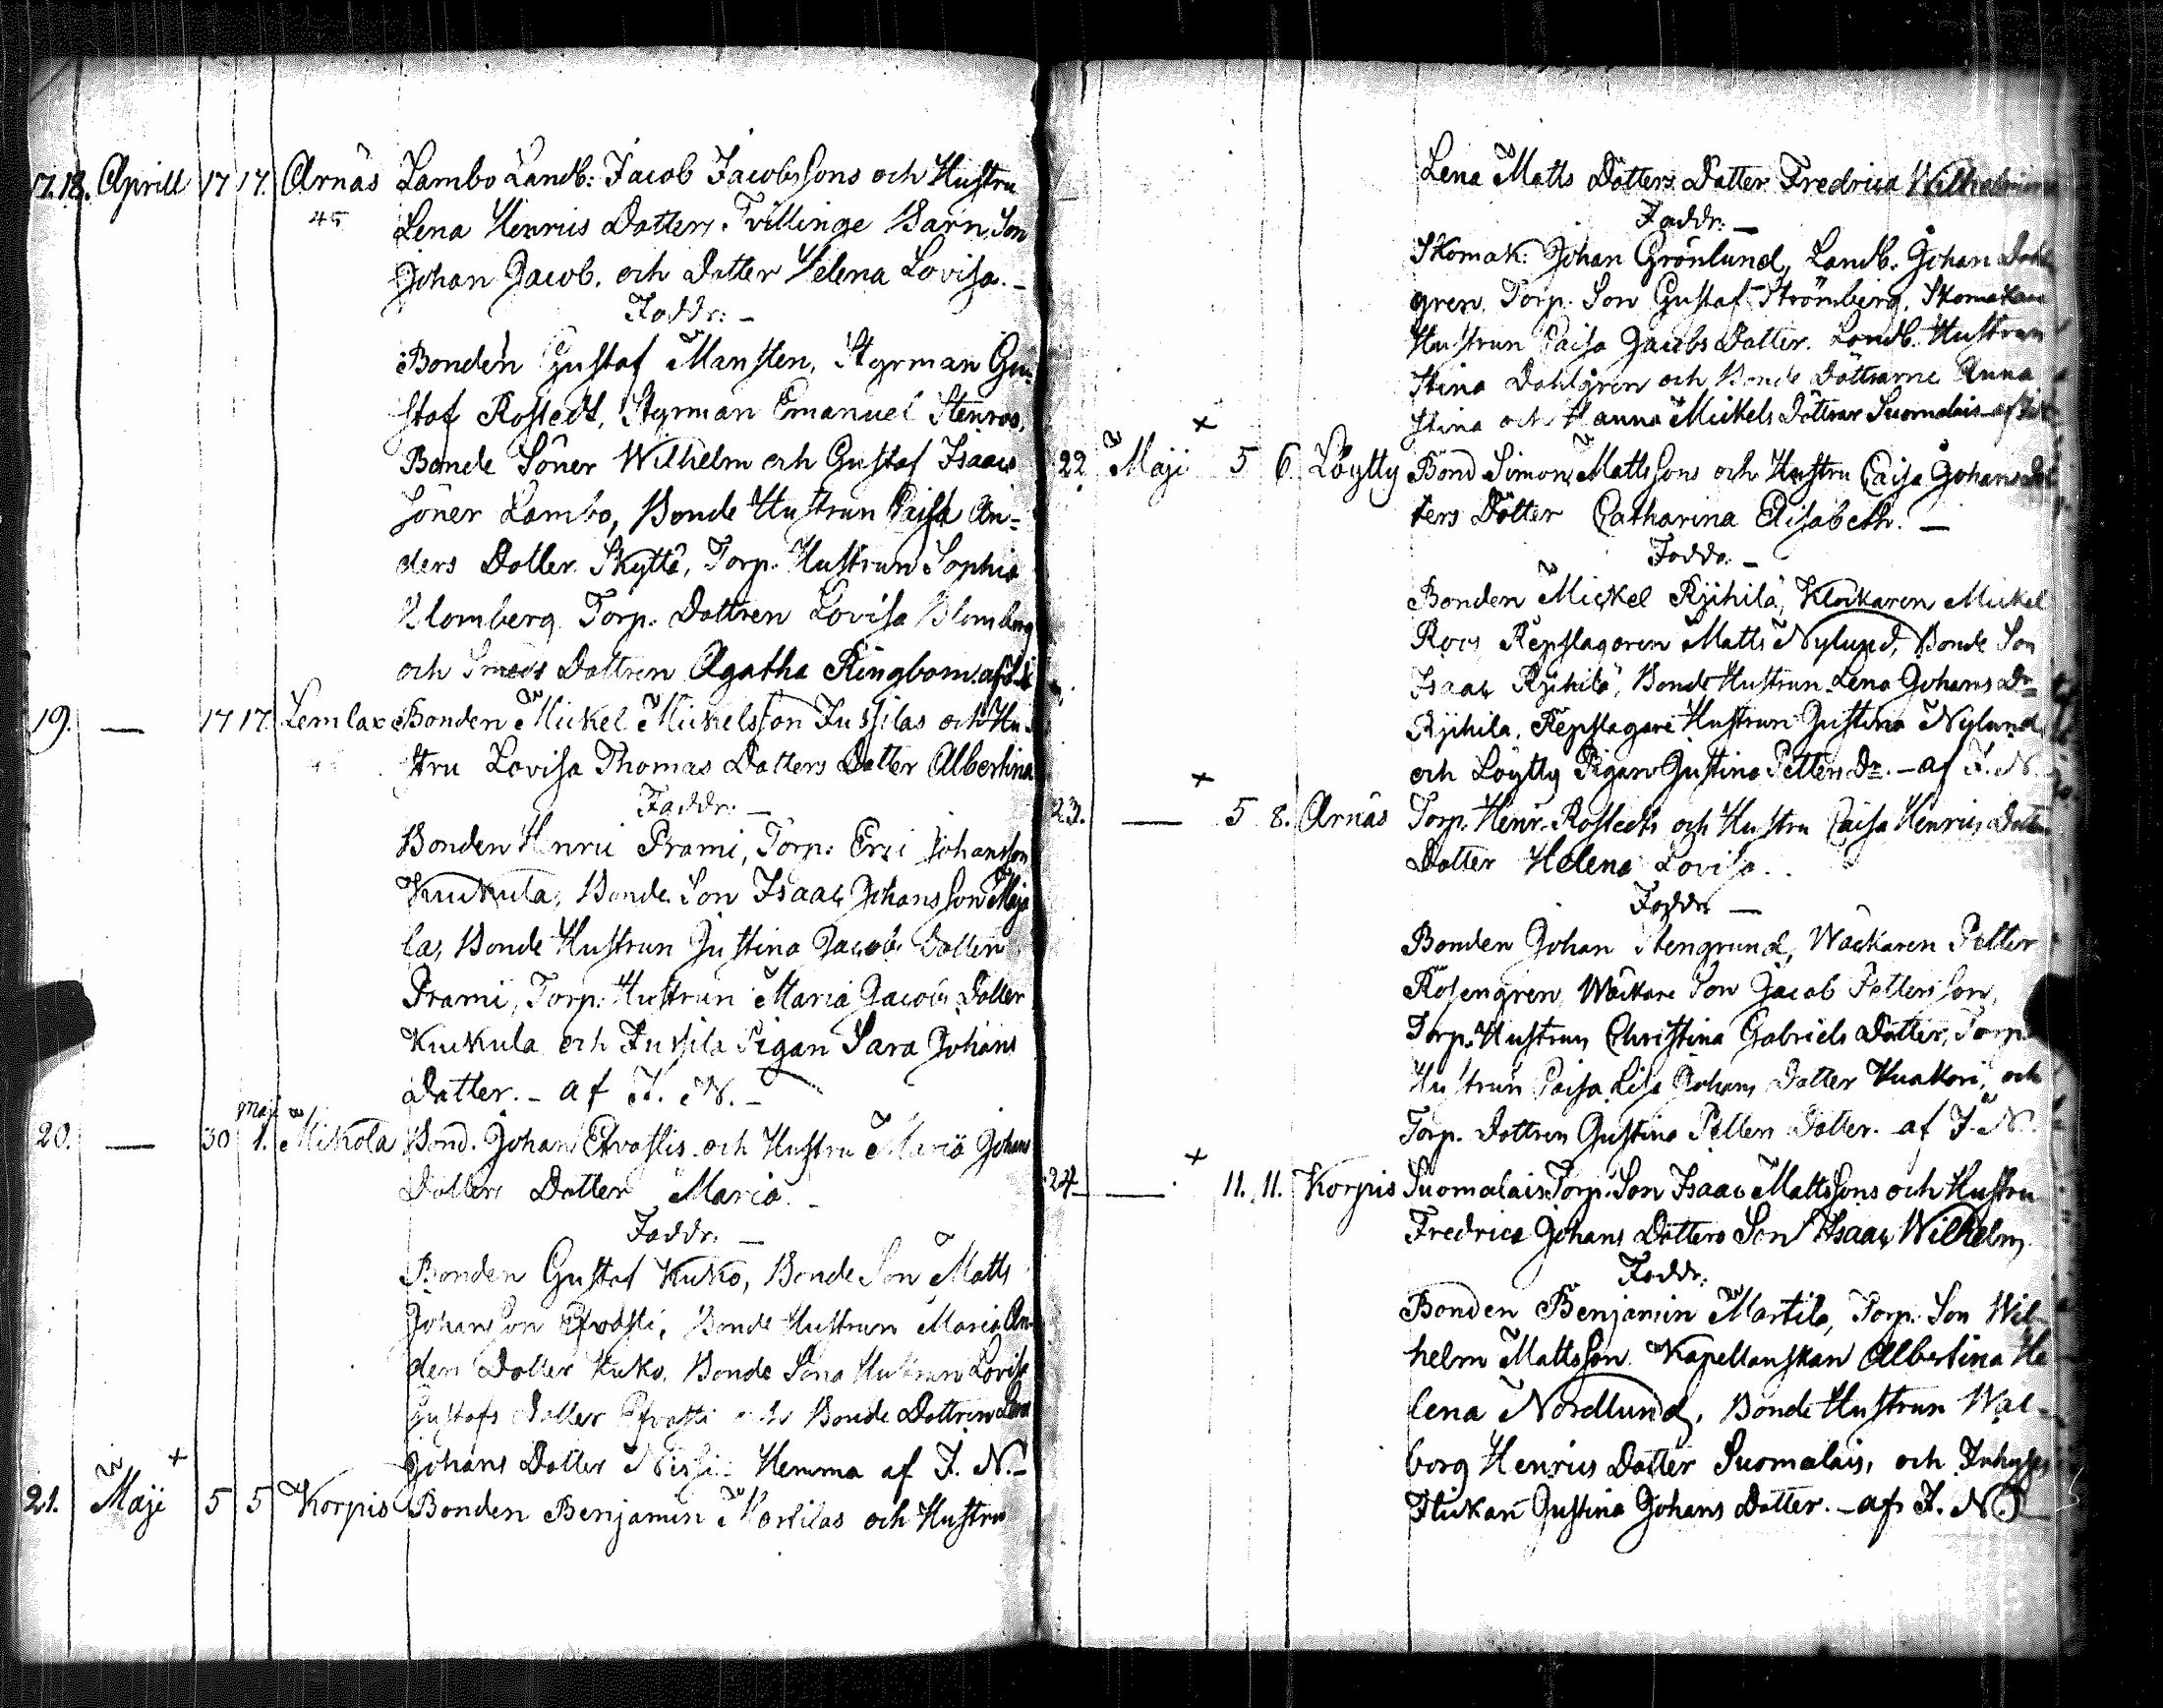 17.18. Aprill 17 17. Arnäs Lambo Landb: Jacob Jacobssons och Hustru
45 Lena Henrics Dotters Tvillinge Barn, Son
Johan Jacob. och Dotter Helena Lovisa. –
Faddr: –
Bonden Gustaf Mansten, Styrman Gu-
staf Rostedt, Styrman Emanuel Stenros,
Bonde Söner Wilhelm och Gustaf Isaacs
Söner Lambo, Bonde Hustrun Caisa An=
ders Dotter Skyttä, Torp. Hustrun Sophia
Blomberg Torp. Dottren Lovisa Blomberg
och Smeds Dottren Agatha Ringbom. af
19. — 17 17. Lemlax Bonden Mickel Mickelsson Jussilas och Hu-
stru Lovisa Thomas Dotters Dotter Albertina
Faddr: –
Bonden Henric Prami, Torp: Eric Johansson
Kuckula, Bonde Son Isaac Johansson Maja
la, Bonde Hustrun Justina Jacobs Dotter
Prami, Torp: Hustrun Maria Jacobs Dotter
Kuckula och Jussila Pigan Sara Johans
Dotter. – af J. N. –
20. — 30 Maji 1. Mikola Bond. Johan Efvastis och Hustru Maria Johans
Dotters Dotter Maria. –
Faddr: —
Bonden Gustaf Kuko, Bonde Son Matts
Johansson Efvasti, Bonde Hustrun Maria An-
ders Dotter Kuko, Bonde Sons Hustrun Lovisa
Gustafs Dotter Efvasti och Bonde Dottren Lena
Johans Dotter Nissi. Hemma af J. N. –
21. Maji + 5 5 Korpis Bonden Benjamin Martilas och Hustru
Lena Matts Dotters Dotter Fredrica Wilhelmina
Faddr: —
Skomak. Johan Grönlund, Landb. Johan Dahl
gren, Torp. Son Gustaf Strömberg, Skomakare
Hustrun Caisa Jacobs Dotter. Landb. Hustrun
Stina Dahlgren och Bonde Döttrarne Anna
Stina och Hanna Mickels Döttrar Suomalais – af
22 Maji + 5 6 Löytty Bond Simon Mattssons och Hustru Caisa Johans Dot
ters Dotter Catharina Elisabeth. —
Faddr: –
Bonden Mickel Rjihilä, Klockaren Mickel
Roos Repslagaren Matts Nylund, Bonde Son
Isaac Rjihilä, Bonde Hustrun Lena Johans Dr
Rjihilä, Repslagare Hustrun Justina Nylund
och Löytty Pigan Justina Petters Dr. – af J. N.
23. — + 5 8. Arnäs Torp. Henr. Rostedts och Hustru Caisa Henrics Dotters
Dotter Helena Lovisa.
Faddr: —
Bonden Johan Stengrund, Wäckaren Petter
Rosengren, Wäckare Son Jacob Pettersson,
Torp. Hustrun Christina Gabriels Dotter, Torp.
Hustrun Caisa Lisa Johans Dotter och
Torp. Dottren Justina Petters Dotter. af J. N.
24 — + 11. 11. Korpis Suomalais Torp. Son Isaac Mattssons och Hustru
Fredrica Johans Dotters Son Isaac Wilhelm
Faddr:
Bonden Benjamin Martila, Torp. Son Wil-
helm Mattsson. Kapellanskan Albertina He
lena Nordlund, Bonde Hustrun Wal-
borg Henrics Dotter Suomalais, och Inhyses
Flickan Justina Johans Dotter. – af J. N. —